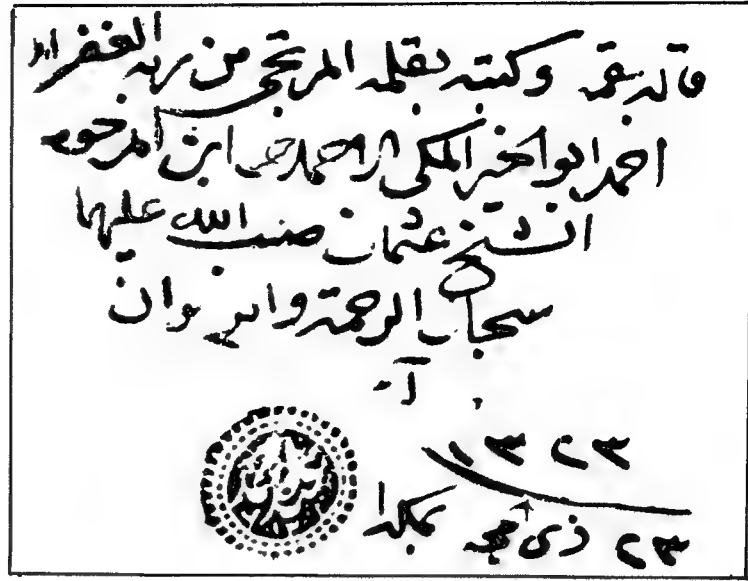 قاله بفمه وكتبه بقلمه المرتجى من ربه الغفران
احمد ابو الخير المكى الاحمدى ابن المرحوم
الشيخ عثمان صب الله عليهما
سجال الرحمة والرضوان
آ
١٣٢٣
٢٣ ذى حجه بمكة